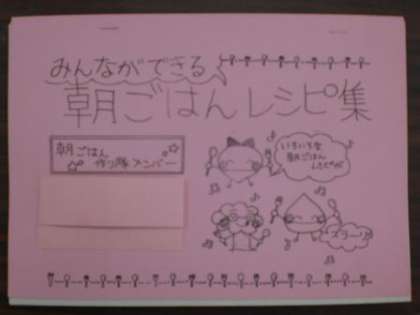 みんなができる
朝ごはんレシピ集
朝ごはん
作り隊メンバー
いろいろな
朝ごはん
レシピが
ズラーリ